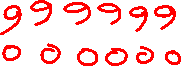 999999
000000